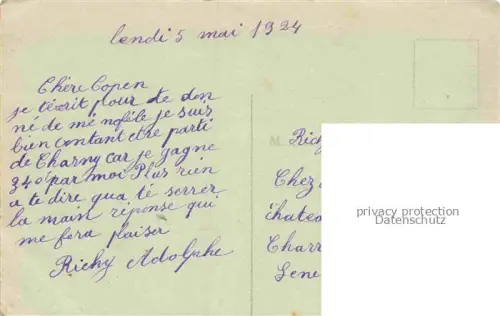 lendi 5 mai 1924
Chère Copen
je t'écrit pour te don
né de mé nofele je suis
bien contant etre parti
de Charny car je gagne
340 par moi Plus rien
a te dire qua té serrer
la main réponse qui
me fera plaiser
Richy Adolphe
M. Rich
Chez
chateau
Charr
Sene
privacy protection
Datenschutz